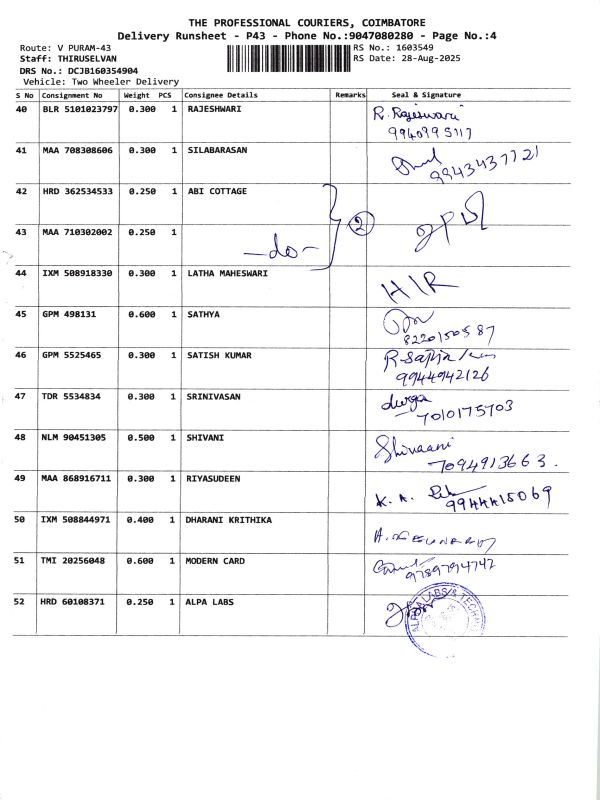 THE PROFESSIONAL COURIERS, COIMBATORE
Delivery Runsheet - P43 - Phone No.:9047080280 - Page No.:4
Route: V PURAM-43 RS No.: 1603549
Staff: THIRUSELVAN RS Date: 28-Aug-2025
DRS No.: DCJB160354904
Vehicle: Two Wheeler Delivery
S No Consignment No Weight PCS Consignee Details Remarks Seal & Signature
40 BLR 5101023797 0.300 1 RAJESHWARI R. Rajeswari
9940995117
41 MAA 708308606 0.300 1 SILABARASAN
9943437721
42 HRD 362534533 0.250 1 ABI COTTAGE
2
43 MAA 710302002 0.250 1
-do-
44 IXM 508918330 0.300 1 LATHA MAHESWARI H/R
45 GPM 498131 0.600 1 SATHYA
8220150587
46 GPM 5525465 0.300 1 SATISH KUMAR
9944942126
47 TDR 5534834 0.300 1 SRINIVASAN durga
7010175703
48 NLM 90451305 0.500 1 SHIVANI Shivaani
7094913663.
49 MAA 868916711 0.300 1 RIYASUDEEN K. A.
9944415069
50 IXM 508844971 0.400 1 DHARANI KRITHIKA
51 TMI 20256048 0.600 1 MODERN CARD
9789794742
52 HRD 60108371 0.250 1 ALPA LABS